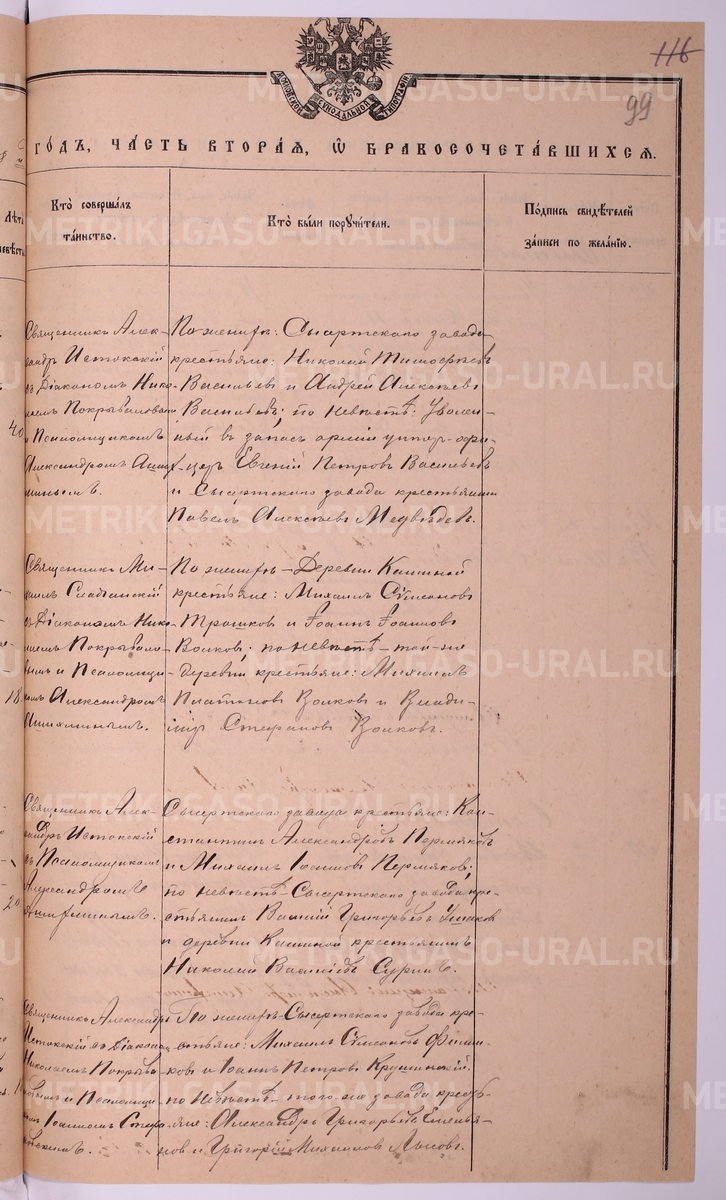 116
99
МОСКОВСКОЙ СѴНОДАЛЬНОЙ ТИПОГРАФІИ
ГО́ДЪ, ЧА́СТЬ ВТОРА́Я, Ѡ҆ БРАКОСОЧЕТА́ВШИХСЯ.
Лѣтъ
невѣсты
Кто̀ соверша́лъ
та́инство.
Кто̀ бы́ли поручи́тели.
По́дпись свидѣ́телей
за́писи по жела́нію.
40
Священникъ Алек-
сандръ Истокскій
съ Діакономъ Нико-
лаемъ Покрываловымъ
и Псаломщикомъ
Александромъ
По женихѣ: Сысертскаго завода
крестьяне: Николай Тимофѣевъ
Васильевъ и Андрей Алексѣевъ
Васильевъ; по невѣстѣ: Уволен-
ный въ запасъ арміи унтеръ-офи-
церъ Евгеній Петровъ Васильевъ
и Сысертскаго завода крестьянинъ
Павелъ Алексѣевъ Медвѣдевъ.
18
Священникъ Ми-
хаилъ
съ Діакономъ Нико-
лаемъ Покрывало-
вымъ и Псаломщи-
комъ Александромъ
По женихѣ – Деревни Кашиной
крестьяне: Михаилъ Симеоновъ
Трошковъ и Іоаннъ Іоанновъ
Волковъ; по невѣстѣ – той-же
деревни крестьяне: Михаилъ
Платоновъ Волковъ и Влади-
міръ Стефановъ Волковъ.
20
Священникъ Алек-
сандръ Истокскій
съ Псаломщикомъ
Александромъ
Сысертскаго завода крестьяне: Кон-
стантинъ Александровъ Пермяковъ
и Михаилъ Іоанновъ Пермяковъ;
по невѣстѣ – Сысертскаго завода кре-
стьянинъ Василій Григорьевъ Ушаков
и деревни Кашиной крестьянинъ
Николай Васильевъ Суринъ.
Священникъ Александръ
Истокскій съ Діакономъ
Николаемъ Покрыва-
ловымъ и Псаломщи-
комъ Іоанномъ
По женихѣ – Сысертскаго завода кре-
стьяне: Михаилъ Симеоновъ
и Іоаннъ Петровъ
по невѣстѣ – того-же завода кресть-
яне: Александръ Григорьевъ Емелья-
новъ и Григорій Михаиловъ
METRIKI.GASO-URAL.RU